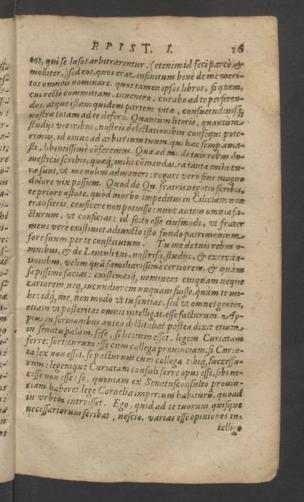 EPIST. I. 16
eos, qui se læsos arbitrarentur. (etenim id feci parcè &
molliter,) sed eos, quos erat infinitum bene de me meri-
tos omneis nominare. quos tamen ipsos libros, si quem,
cui rectè committam, invenero, curabo ad te perferen-
dos. atque istam quidem partem vitæ, consuetudinisq́;
nostræ totam ad te defero. Quantum literis, quantum
studijs veteribus, nostris delectationibus consequi pote-
rimus, id omne ad arbitrium tuum, qui hæc semper ama-
sti, libentissimè conferemus. Quæ ad me de tuis rebus do-
mesticis scribis, quæq́; mihi commendas, ea tantæ mihi cu-
ræ sunt, ut me nolim admoneri: rogari verò sine magno
dolore vix possim. Quod de Qu. fratris negotio scribis,
te priore æstate, quod morbo impeditus in Ciliciam non
transieris, conficere non potuisse: nunc autem omnia fa-
cturum, ut conficias: id scito esse eiusmodi, ut frater
meus verè existimet adiuncto isto fundo patrimonium
fore suum per te constitutum. Tu me de tuis rebus o-
mnibus, & de Lentuli tui, nostriq́; studijs, & exercita-
tionibus velim quàm familiarissimè certiorem, & quàm
sæpissimè facias: existimesq́; neminem cuiquam neque
cariorem neq́; iucundiorem unquam fuisse, quàm te mi-
hi: idq́; me, non modò ut tu sentias, sed ut omnes gentes,
etiam ut posteritas omnis intelligat, esse facturum. Ap-
pius in sermonibus antea dictitabat, postea dixit etiam
in senatu palàm, sese, si licitum esset, legem Curiatam
ferre, sortiturum esse cum collega provinciam; si Curia-
ta lex non esset, se paraturum cum collega, tibiq́; successu-
rum: legemque Curiatam consuli ferre opus esse, sibi ne-
cesse non esse: se, quoniam ex Senatusconsulto provin-
ciam haberet lege Cornelia imperium habiturum, quoad
in urbem introisset. Ego, quid ad te tuorum quisque
necessariorum scribat, nescio, varias esse opiniones in-
telligo